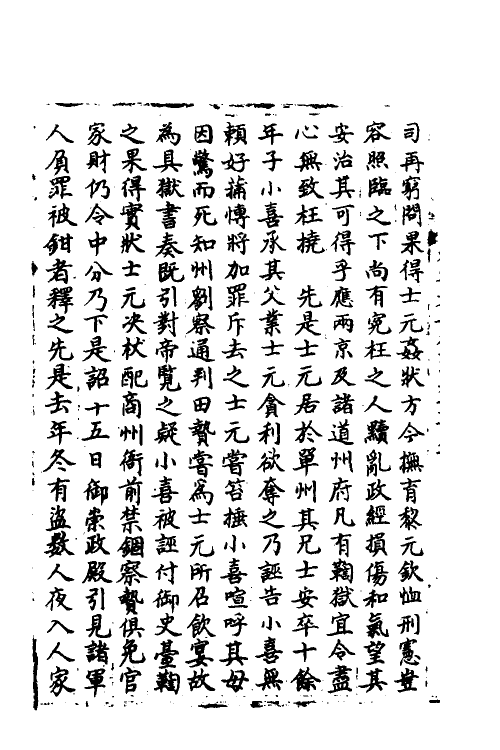 司再窮問果得士元姦狀方今撫育黎元欽恤刑憲豈
容照臨之下尚有寃枉之人黷亂政經損傷和氣望其
安治其可得乎應兩京及諸道州府凡有鞫獄宜令盡
心無致枉撓　先是士元居於單州其兄士安卒十餘
年子小喜承其父業士元貪利欲奪之乃誣告小喜無
頼好蒱愽將加罪斥去之士元嘗笞捶小喜喧呼其母
因驚而死知州劉察通判田贄嘗爲士元所召飲宴故
為具獄書奏既引對帝覧之疑小喜被誣付御史臺鞫
之果得實狀士元决杖配商州衙前禁錮察贄俱免官
家財仍令中分乃下是詔十五日御崇政殿引見諸軍
人負罪被鉗者釋之先是去年冬有盜数人夜入人家